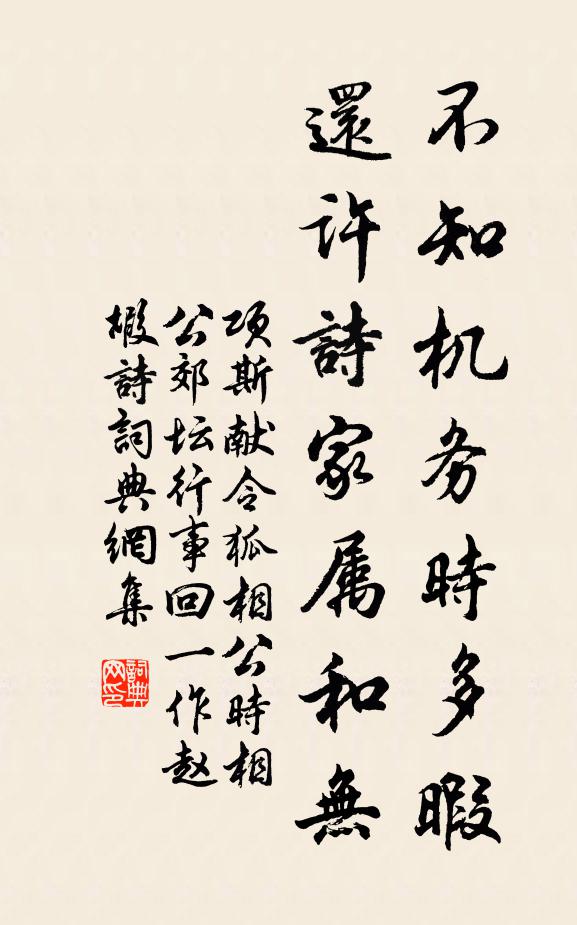 不知机务時多暇
還許詩家属和無
项斯献令狐相公時相
公郊坛行事回一作赵
嘏詩詞典網集
詞典
网印